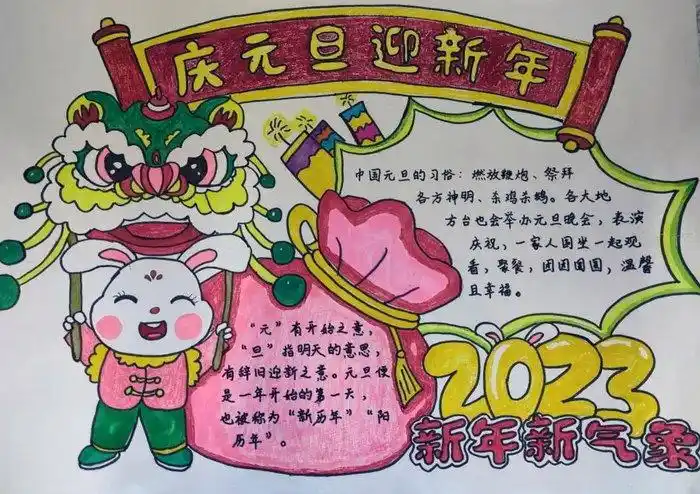 庆元旦迎新年
中国元旦的习俗：燃放鞭炮、祭拜
各方神明、杀鸡杀鹅。各大地
方台也会举办元旦晚会，表演
庆祝，一家人围坐一起观
看，聚餐，团团圆圆，温馨
且幸福。
“元”有开始之意，
“旦”指明天的意思，
有辞旧迎新之意。元旦便
是一年开始的第一天，
也被称为“新历年”“阳
历年”。
2023
新年新气象